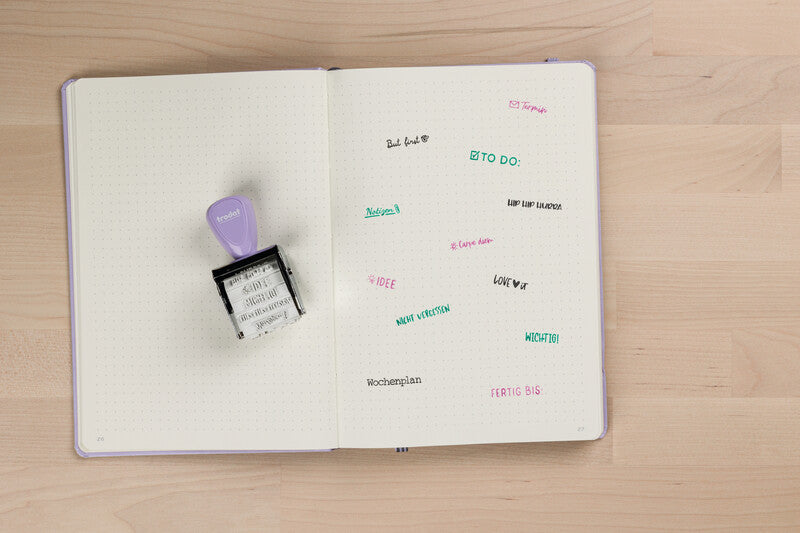 trodat
Termin
But first
TO DO:
Notizen
HIP HIP HURRA
# Carpe diem
IDEE
LOVE IT
NICHT VERGESSEN
WICHTIG!
Wochenplan
FERTIG BIS:
26
27